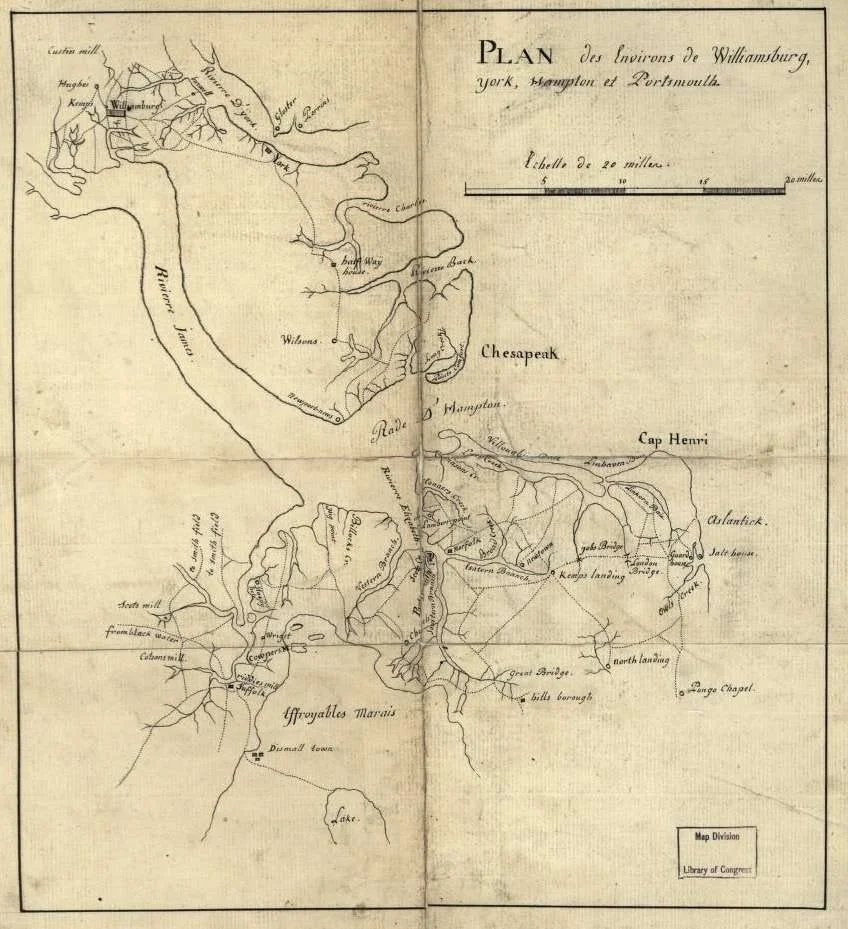 PLAN des Environs de Williamsburg,
York, Hampton et Portsmouth.
Echelle de 20 milles.
5 10 15 20 milles
Custin mill
Hughes
Kemps
Williamsburg
Rivierre D'york
Gloster
Perrins
York
rivierre Charles
half Way
house.
Rivierre Back
Rivierre James.
Wilsons
Newportnews
Chesapeak
Rade D'Hampton.
Cap Henri
Linhaven Bay
Rivierre Elizabeth
Tanners Creek
Lamberts point
Norfolk
Newtown
Eastern Branch
Western Branch.
Bullocks Cr.
to smith field
to smith field
Aslantick.
Jobs Bridge
London
Bridge.
Guard
house
Salt house.
Kemps landing
Owls Creek.
Scots mill
from black water
Cotons mill.
Wright
Cowpers
riddles mill
Suffolk
Great Bridge.
hills borough
north landing
Pongo Chapel.
Affroyables Marais
Dismall town
Lake.
Map Division
Library of Congress